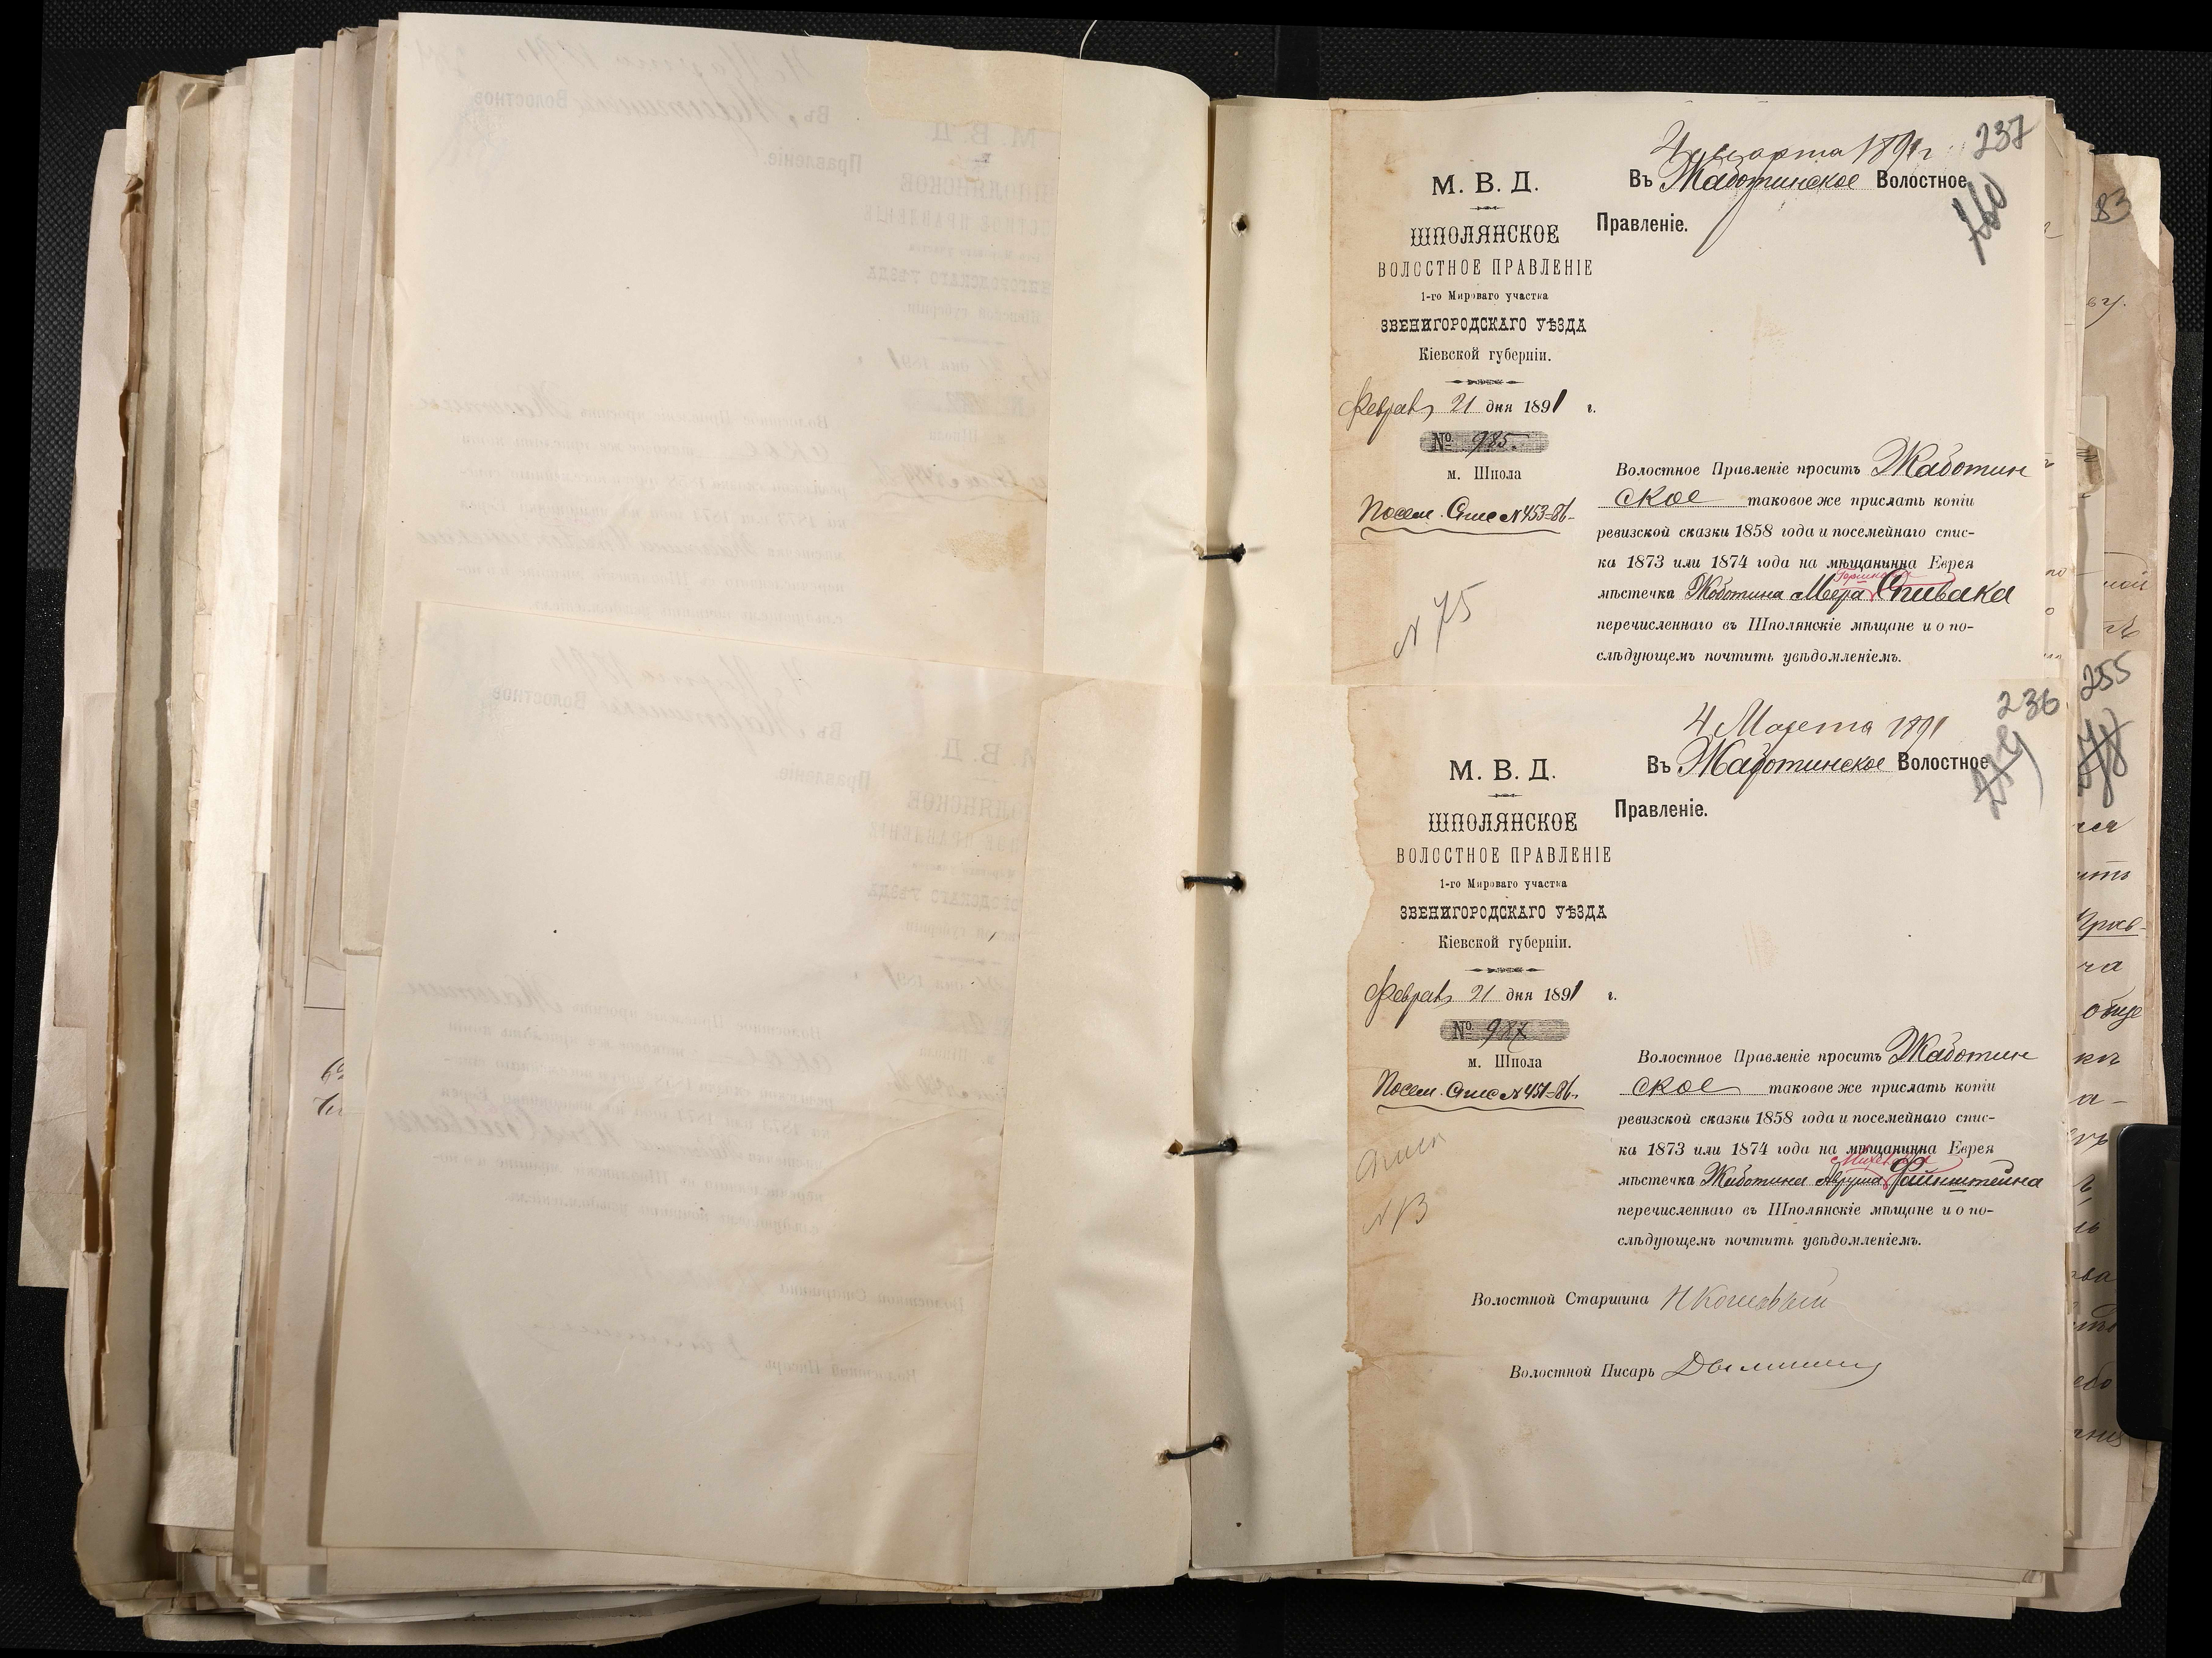 237
4 Марта 1891 г
М. В. Д.
Въ Жаботинское Волостное
Правленіе.
260
ШПОЛЯНСКОЕ
ВОЛОСТНОЕ ПРАВЛЕНІЕ
1-го Мироваго участка
ЗВЕНИГОРОДСКАГО УѢЗДА
Кіевской губерніи.
Февраля 21 дня 1891 г.
№ 985.
м. Шпола
Посем. Спис № 453-86.
Волостное Правленіе проситъ Жаботин
ское таковое же прислать копіи
ревизской сказки 1858 года и посемейнаго спис-
ка 1873 или 1874 года на мѣщанинна Еврея
мѣстечка Жаботина Меера Спивака
перечисленнаго въ Шполянскіе мѣщане и о по-
слѣдующемъ почтить увѣдомленіемъ.
N 75
236
4 Марта 1891
М. В. Д.
Въ Жаботинское Волостное
Правленіе.
ШПОЛЯНСКОЕ
ВОЛОСТНОЕ ПРАВЛЕНІЕ
1-го Мироваго участка
ЗВЕНИГОРОДСКАГО УѢЗДА
Кіевской губерніи.
Февраля 21 дня 1891 г.
№ 987
м. Шпола
Посем. Спис № 451-86.
Волостное Правленіе проситъ Жаботин
ское таковое же прислать копіи
ревизской сказки 1858 года и посемейнаго спис-
ка 1873 или 1874 года на мѣщанинна Еврея
мѣстечка Жаботина Авруша Файнштейна
перечисленнаго въ Шполянскіе мѣщане и о по-
слѣдующемъ почтить увѣдомленіемъ.
N 13
Волостной Старшина
Волостной Писарь
83
255